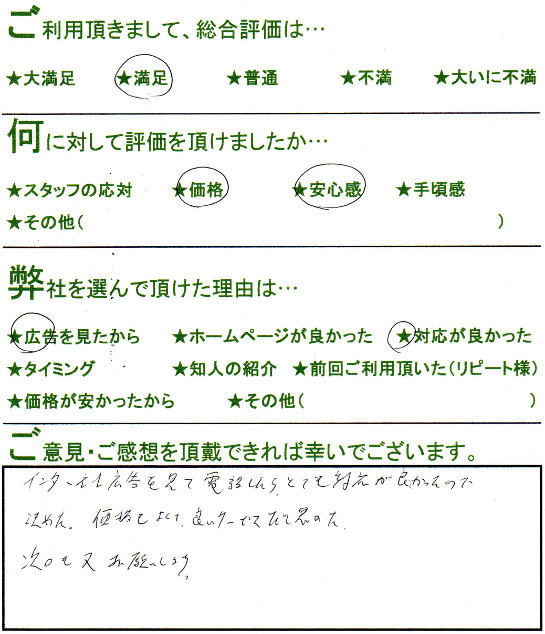 ご利用頂きまして、総合評価は…
★大満足 ★満足 ★普通 ★不満 ★大いに不満
何に対して評価を頂けましたか…
★スタッフの応対 ★価格 ★安心感 ★手頃感
★その他( )
弊社を選んで頂けた理由は…
★広告を見たから ★ホームページが良かった ★対応が良かった
★タイミング ★知人の紹介 ★前回ご利用頂いた(リピート様)
★価格が安かったから ★その他( )
ご意見・ご感想を頂戴できれば幸いでございます。
インターネット広告を見て電話したら、とても対応が良かったので
決めた。価格もよくて、良いサービスだと思った。
次回も又お願いしよう。